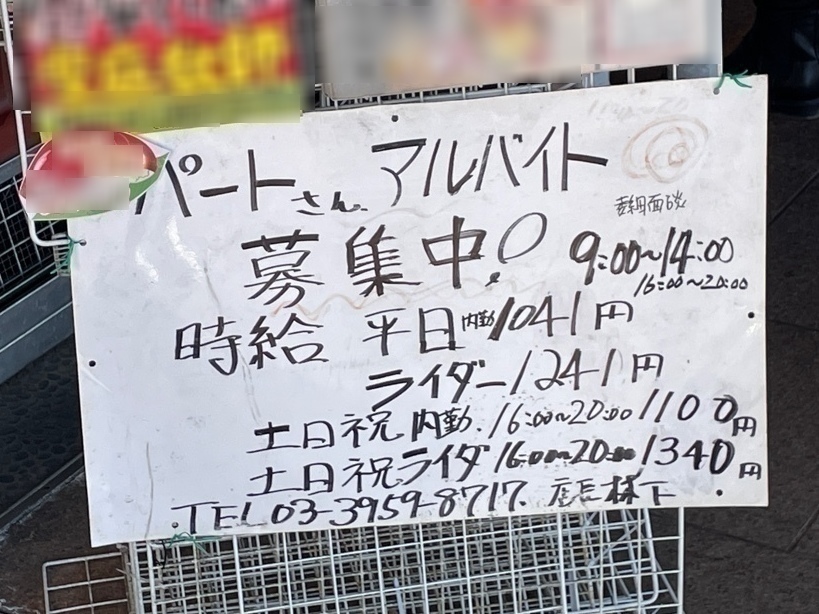 パートさん、アルバイト
詳細面談
募集中!
9:00~14:00
16:00~20:00
時給 平日 内勤 1041円
ライダー 1241円
土日祝 内勤. 16:00~20:00 1100円
土日祝 ライダ 16:00~20:00 1340円
TEL 03-3959-8717.